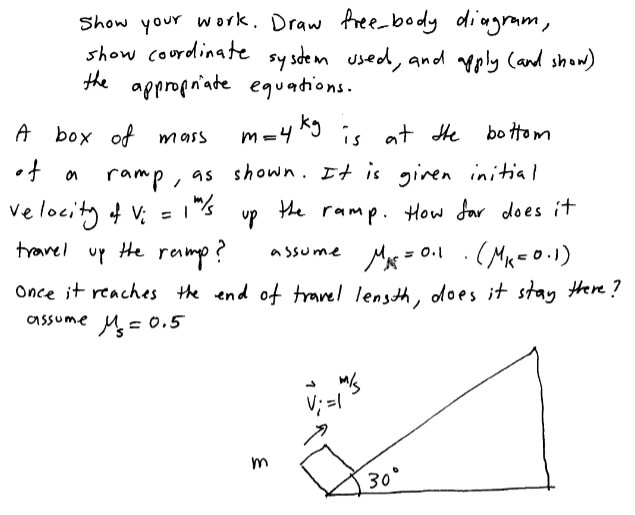 Show your work. Draw free-body diagram,
show coordinate system used, and apply (and show)
the appropriate equations.
A box of mass m=4 kg is at the bottom
of a ramp, as shown. It is given initial
velocity of Vi = 1 m/s up the ramp. How far does it
travel up the ramp? assume μk = 0.1 . (μk = 0.1)
Once it reaches the end of travel length, does it stay there?
assume μs = 0.5
V⃗i = 1 m/s
m
30°